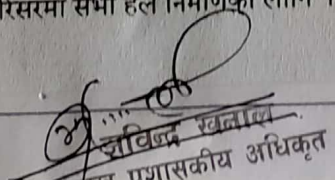 रिसरमा सभा हल निर्माणका लागि
रविन्द्र खनाल
प्रशासकीय अधिकृत